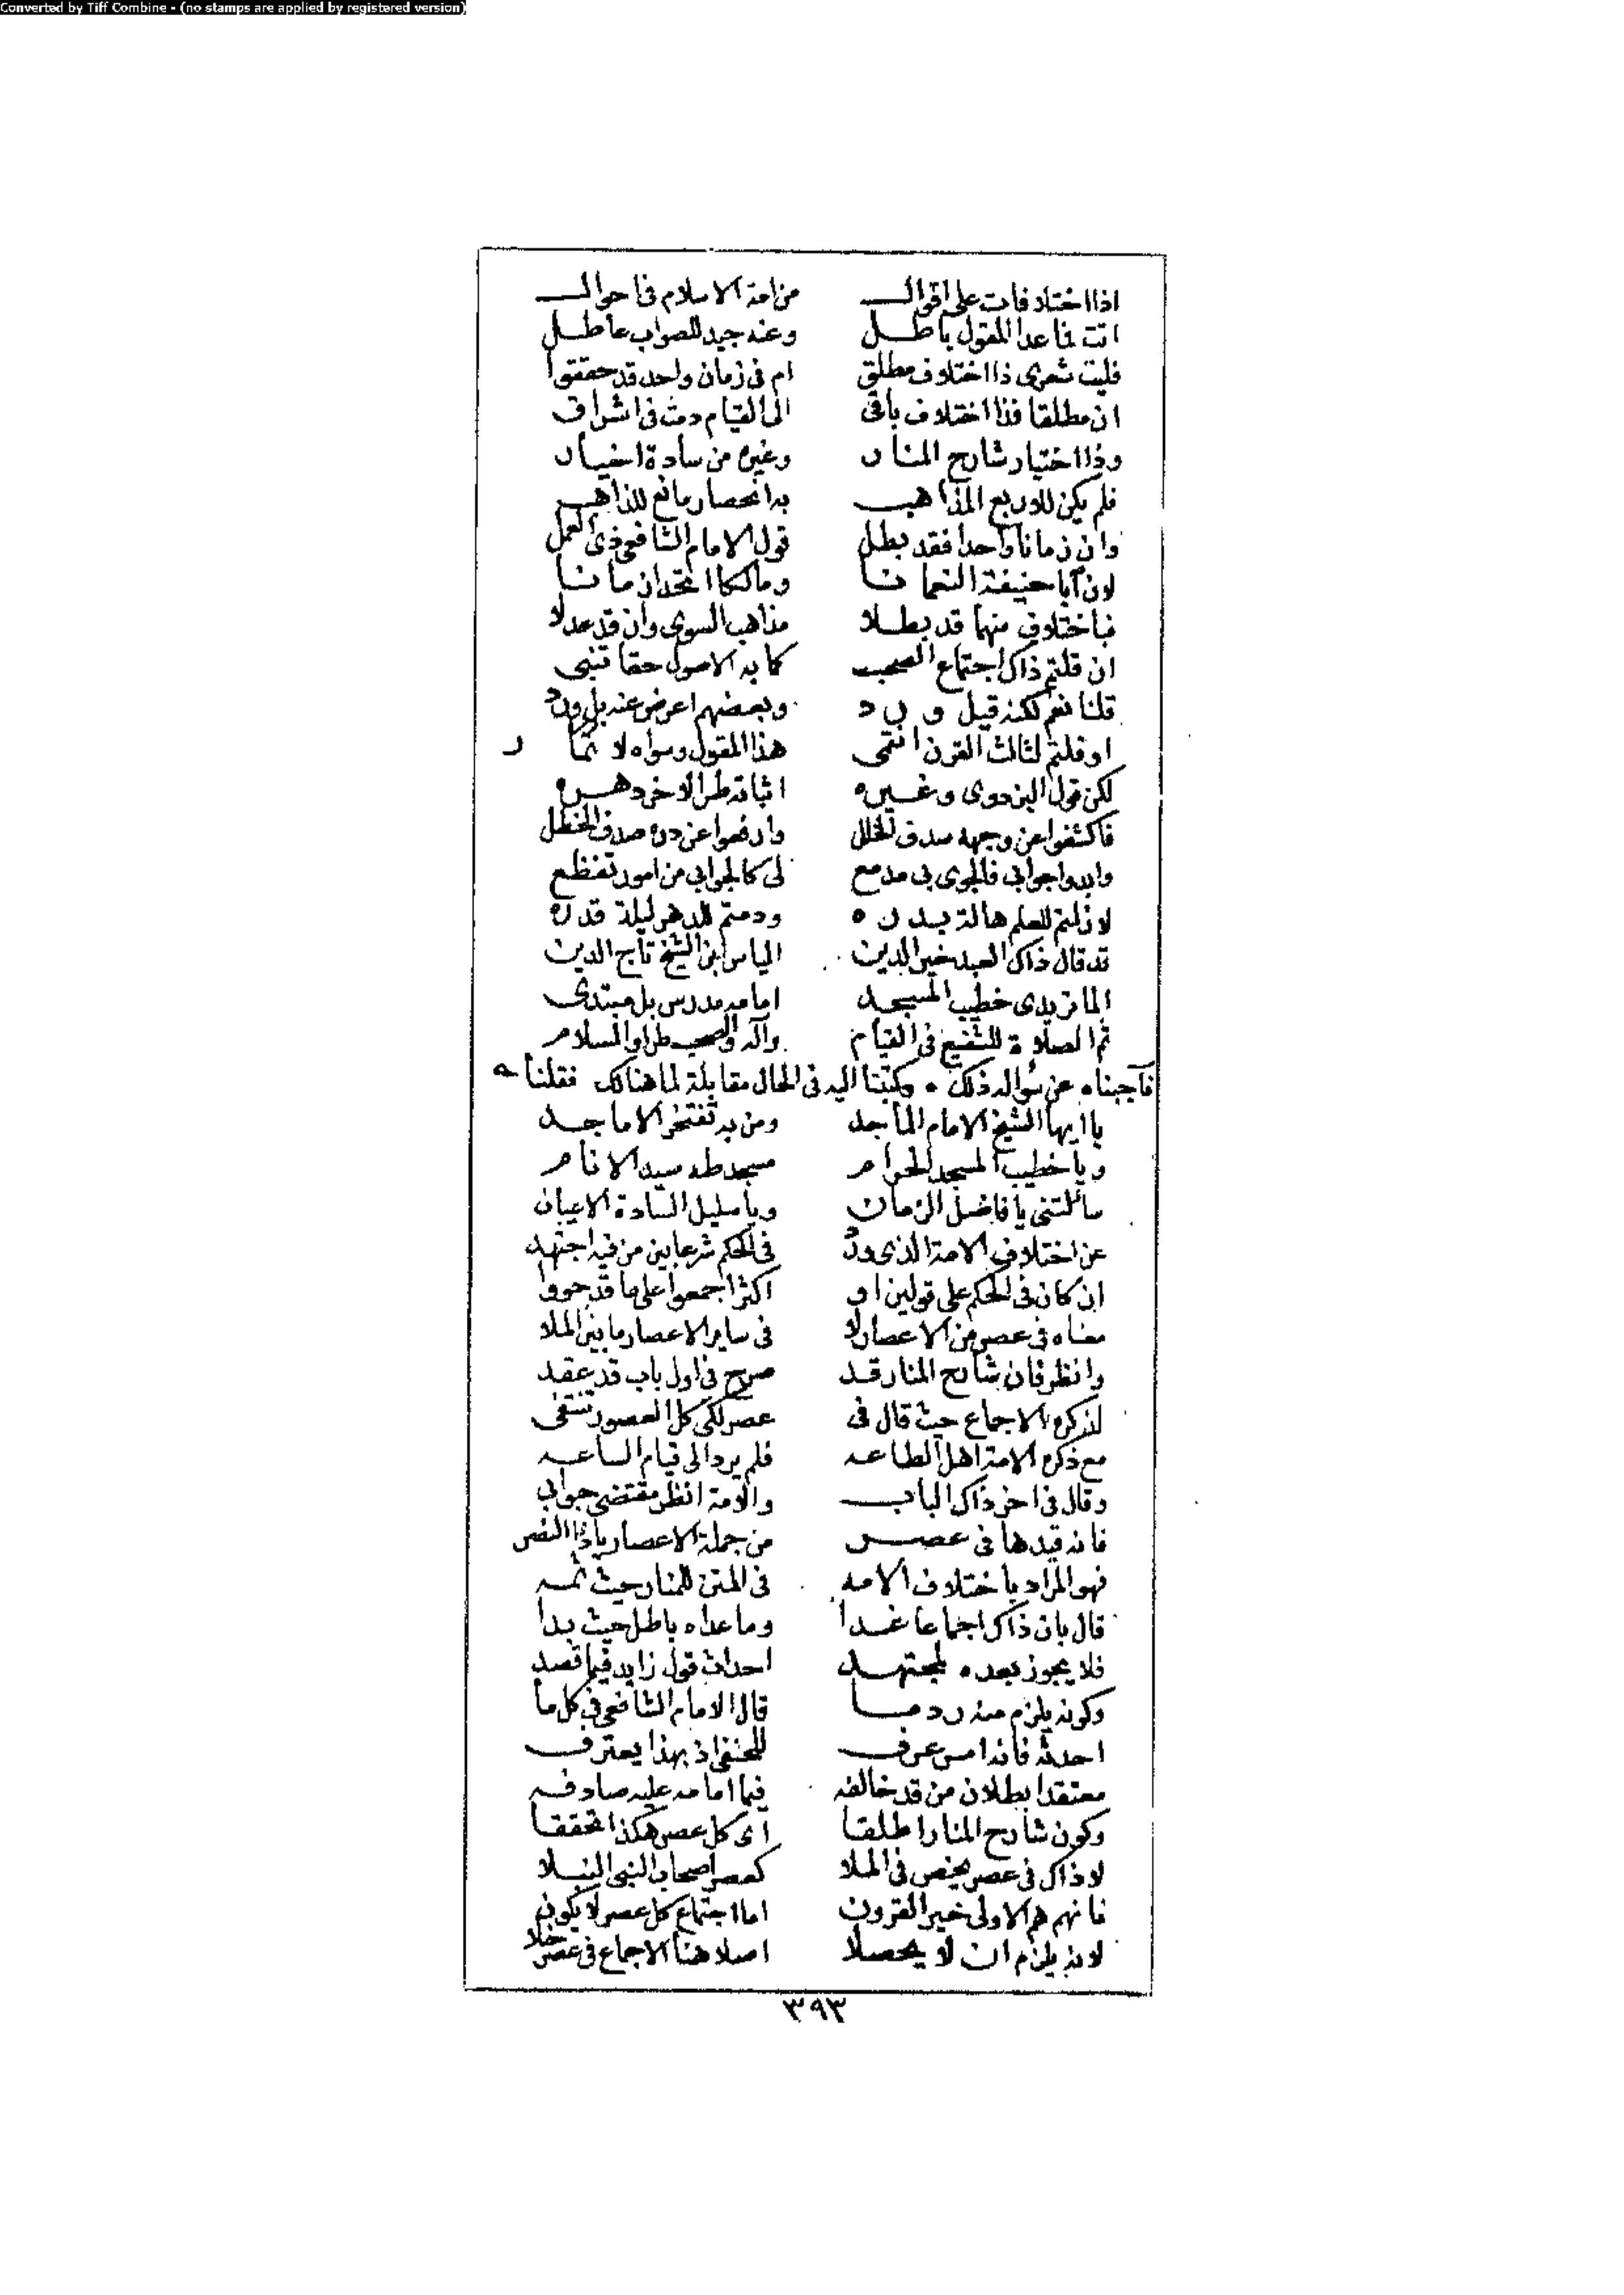 Converted by Tiff Combine - (no stamps are applied by registered version)
اذا اختلافات على اقوال من امة الاسلام في احوال
اتت فما عدا المقول باطل وعنه جيد للصواب عاطل
فليت شعرى ذا اختلاف مطلق ام في زمان واحد قد حققوا
ان مطلقا فذا اختلاف باقى الى القيام دمت في اشراق
وذا اختيار شارح المنار وغيره من سادة اخيار
فلم يكن للاربع المذاهب به انحصار مانع للذاهب
وان زمانا واحدا فقد بطل قول الامام الشافعى ذى العمل
لان ابا حنيفة النعمانا ومالكا اتحدا زمانا
فباختلاف منهما قد بطلا مذاهب السوى وان قد عدلا
ان قلتم ذاك اجتماع الصحب كما به الاصول حقا تنبى
قلنا نعم لكنه قيل ورد وبعضهم اعرض عنه بل ورد
او قلتم لثالث القرن انتمى هذا المقول وسواه لا نما
لكن قول البزدوى وغيره اثباته طرا لاخر دهره
فاكشفوا عن وجهه صدق الخلل وارفعوا عن دره صدف الخطل
وابدوا جوابى فالجوى بى مدمع لى كالجوابى من امور تفظع
لا زلتم للعلم هالة بدره ودمتم للدهر ليلة قدره
قد قال ذاك العبد خير الدين الياس ابن الشيخ تاج الدين
الماتريدى خطيب المسجد امامه مدرس بل مبتدى
ثم الصلاة للشفيع فى القيام وآله والصحب طرا والسلام
فآجبناه عن سؤاله ذلك • وكتبنا اليه فى الحال مقابلة لما هنالك فقلنا
يا ايها الشيخ الامام الماجد ومن به تفتخر الاماجد
ويا خطيب المسجد الحرام مسجد طه سيد الانام
سألتنى يا فاضل الزمان ويا سليل السادة الاعيان
عن اختلاف الامة الذى ورد فى الحكم شرعا بين من فيه اجتهد
ان كان فى الحكم على قولين او اكثر اجمعوا على ما قد حووا
معناه فى عصر من الاعصار لا فى ساير الاعصار ما بين الملا
وانظر فان شارح المنار قد صرح فى اول باب قد عقد
لذكره الاجماع حيث قال فى عصر لكى كل العصور تنتفى
مع ذكره الامة اهل الطاعه فلم يرد الى قيام الساعه
وقال فى اخر ذاك الباب والامة انظر مقتضى جوابى
فانه قيدها فى عصر من جملة الاعصار يا ذا النصر
فهو المراد باختلاف الامه فى المتن للمنار حيث ثمه
قال بان ذاك اجماعا غدا وما عداه باطل حيث بدا
فلا يجوز بعده لمجتهد احداث قول زايد فيما قصد
وكونه يلزم منه رد ما قال الامام الشافعى فى كل ما
احدثه فانه امر عرف للحنفى اذ بهذا يعترف
معتقدا بطلان من قد خالفه فيما امامه عليه صادفه
وكون شارح المنار اطلقا اى كل عصر هكذا تحققا
لا ذاك فى عصر يخص فى الملا كعصر اصحاب النبى النبلا
فانهم هم الاولى خير القرون اما اجتماع كل عصر لا يكون
لانه يلزم ان لا يحصلا اصلا هنا الاجماع فى عصر خلا
٣٩٣